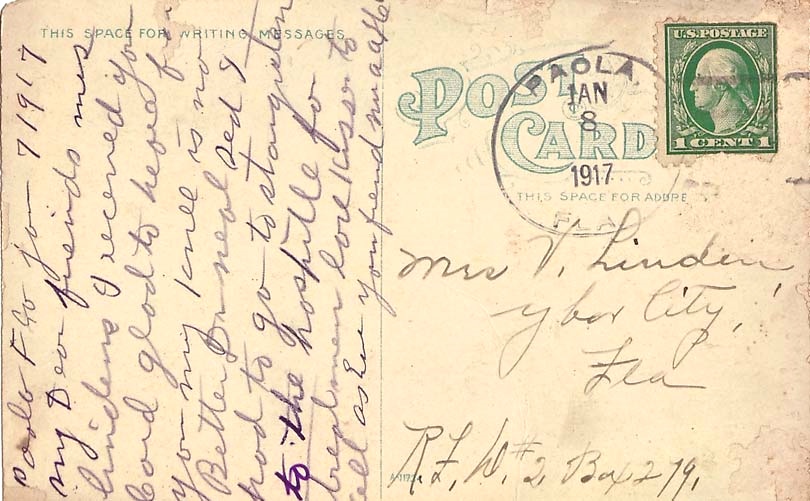 THIS SPACE FOR WRITING MESSAGES
Paola Fla Jan 7 1917
my Dear friends mrs
lindens I received you
Card glad to hear f
you my knee is no
Better Dr neal sed I
had to go to
to the hospitlle fo
love kisses to
all as Ever your frend
POST
CARD
PAOLA,
JAN
8
1917
FLA
U.S. POSTAGE
1 CENT 1
THIS SPACE FOR ADDRE
Mrs V. Linden,
ybor City,
Fla
R.F.D. # 2, Box 279,